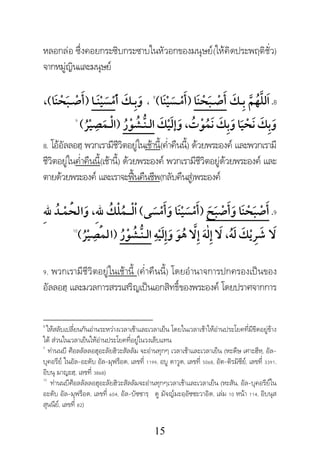 หลอกล่อ ซึ่งคอยกระซิบกระซาบในหัวอกของมนุษย์(ให้คิดประพฤติชั่ว)
จากหมู่ญินและมนุษย์
8. اَللَّهُمَّ بِـكَ أَصْبَحْنَا (أَمْـسَيْنَا)⁸ ، وَبِـكَ أَمْسَيْـنَـا (أَصْبَحْنَا)،
وَبِكَ نَحْيَا، وَبِكَ نَمُوْتُ، وَإِلَيْكَ النُّـشُوْرُ (الْـمَصِيْرُ) ⁹
8. โอ้อัลลอฮฺ พวกเรามีชีวิตอยู่ในเช้านี้(ค่ำคืนนี้) ด้วยพระองค์ และพวกเรามี
ชีวิตอยู่ในค่ำคืนนี้(เช้านี้) ด้วยพระองค์ พวกเรามีชีวิตอยู่ด้วยพระองค์ และ
ตายด้วยพระองค์ และเราจะฟื้นคืนชีพ(กลับคืน)สู่พระองค์
9. أَصْبَحْنَا وَأَصْبَحَ (أَمْسَيْنَا وَأَمْسَى) الْـمُلْكُ لِلهِ، وَالْـحَمْدُ لِلهِ
لَا شَرِيْكَ لَهُ، لَا إِلٰهَ إِلَّا هُوَ وَإِلَيْهِ النُّـشُوْرُ (الـمَصِيْرُ)¹⁰
9. พวกเรามีชีวิตอยู่ในเช้านี้ (ค่ำคืนนี้) โดยอำนาจการปกครองเป็นของ
อัลลอฮฺ และมวลการสรรเสริญเป็นเอกสิทธิ์ของพระองค์ โดยปราศจากการ
⁸ ให้สลับเปลี่ยนกันอ่านระหว่างเวลาเช้าและเวลาเย็น โดยในเวลาเช้าให้อ่านประโยคที่มีขีดอยู่ข้าง
ใต้ ส่วนในเวลาเย็นให้อ่านประโยคที่อยู่ในวงเล็บแทน
⁹ ท่านนบี ศ็อลลัลลอฮุอะลัยฮิวะสัลลัม จะอ่านทุกๆ เวลาเช้าและเวลาเย็น (หะดีษ เศาะฮีหฺ, อัล-
บุคอรีย์ ในอัล-อะดับ อัล-มุฟร็อด, เลขที่ 1199, อบู ดาวูด, เลขที่ 5068, อัต-ติรมีซีย์, เลขที่ 3391,
อิบนุ มาญะฮฺ, เลขที่ 3868)
¹⁰ ท่านนบีศ็อลลัลลอฮุอะลัยฮิวะสัลลัมจะอ่านทุกๆเวลาเช้าและเวลาเย็น (หะสัน, อัล-บุคอรีย์ใน
อะดับ อัล-มุฟร็อด, เลขที่ 604, อัล-บัซซารฺ ดู มัจญ์มะอฺอัซซะวาอิด, เล่ม 10 หน้า 114, อิบนุส
สุนนีย์, เลขที่ 82)
15